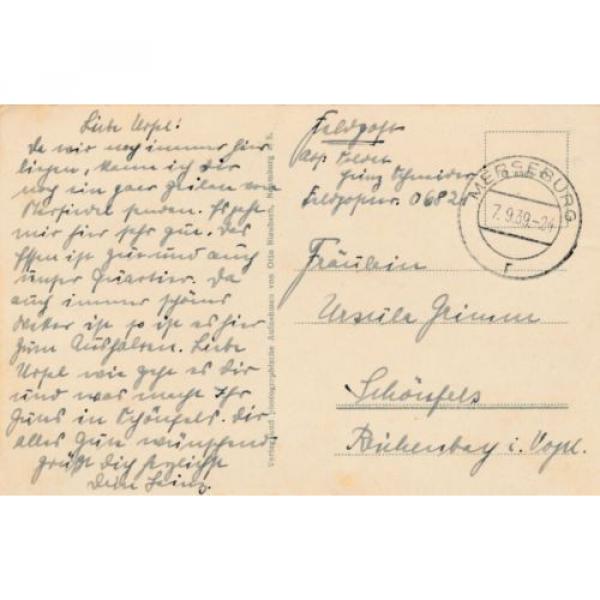 Liebe Ursel!
Da wir noch immer hier
liegen, kann ich dir
noch ein paar Zeilen von
senden. Es geht
mir hier sehr gut. Das
Essen ist gut und auch
unser Quartier. Da
auch immer schönes
Wetter ist so ist es hier
zum Aushalten. Liebe
Ursel wie geht es dir
und was macht Ihr
in Schönfels. Dir
alles Gute wünschend
grüßt dich herzlichst
Dein Heinz.
Verlag und photographische Aufnahmen von Otto Naumburg a. S.
Feldpost
Abs. Soldat
Heinz Schneider
Feldpostnr. 06826
MERSEBURG
7.9.39.-24
r
Fräulein
Ursula Grimm
Schönfels
i. Vogtl.